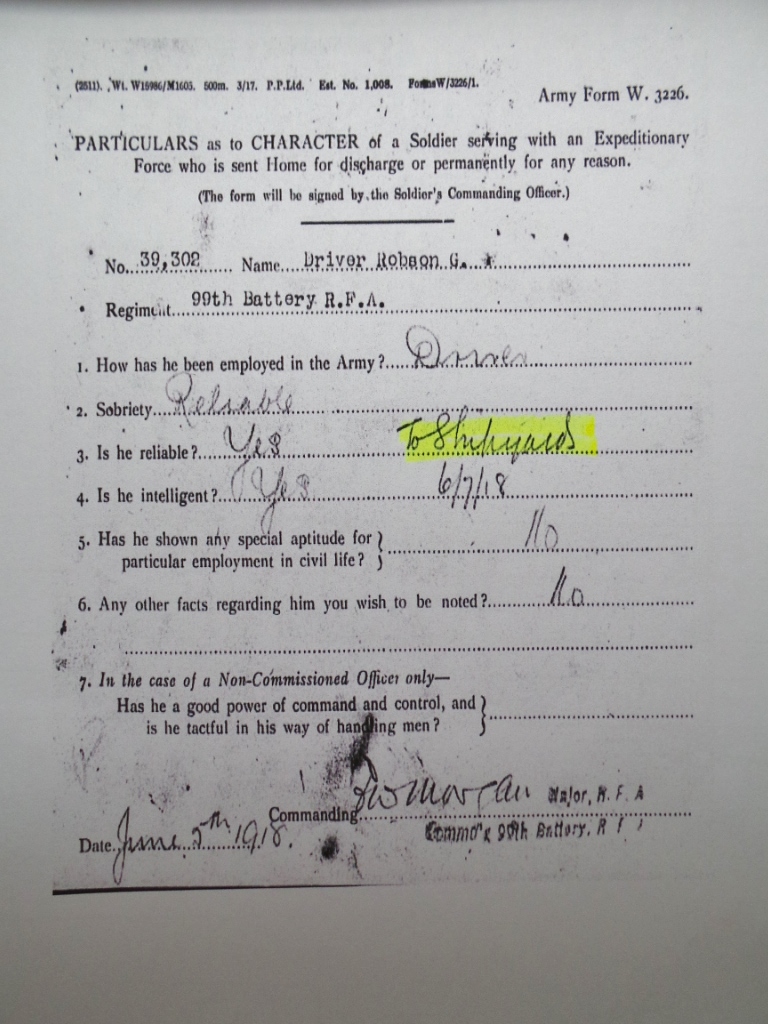 (2511). Wt. W15986/M1605. 500m. 3/17. P.P.Ltd. Est. No. 1,008. Forms W/3226/1.
Army Form W. 3226.
PARTICULARS as to CHARACTER of a Soldier serving with an Expeditionary
Force who is sent Home for discharge or permanently for any reason.
(The form will be signed by the Soldier's Commanding Officer.)
No. 39,302 Name Driver Robson G.
Regiment 99th Battery R.F.A.
1. How has he been employed in the Army? Driver
2. Sobriety Reliable
3. Is he reliable? Yes To Shipyards
4. Is he intelligent? Yes 6/7/18
5. Has he shown any special aptitude for
particular employment in civil life? No
6. Any other facts regarding him you wish to be noted? No
7. In the case of a Non-Commissioned Officer only—
Has he a good power of command and control, and
is he tactful in his way of handling men?
Commanding Morgan Major, R.F.A
Commd'g 99th Battery, R F
Date June 5th 1918.